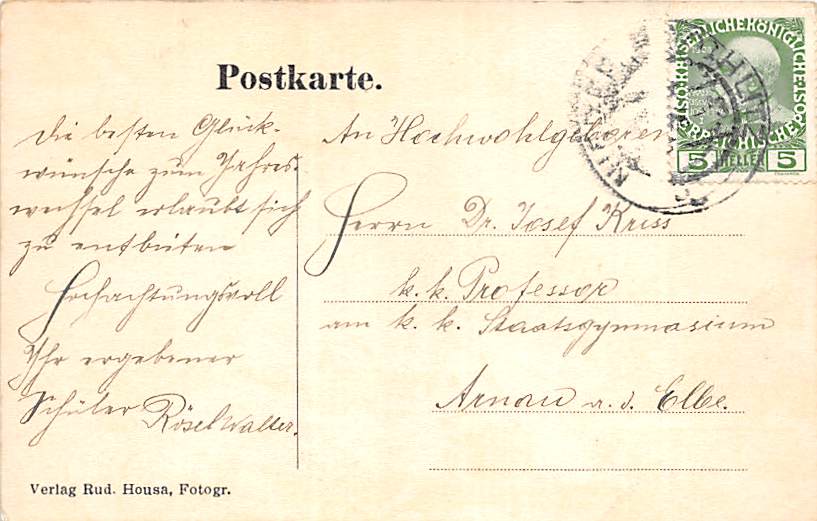 Postkarte.
Die besten Glück-
wünsche zum Jahres-
wechsel erlaubt sich
zu entbieten
Hochachtungsvoll
Ihr ergebener
Schüler Rösel Walter.
An Hochwohlgeboren
Herrn Dr. Josef Kriss
k. k. Professor
am k. k. Staatsgymnasium
Arnau a. d. Elbe.
5 HELLER 5
Verlag Rud. Housa, Fotogr.